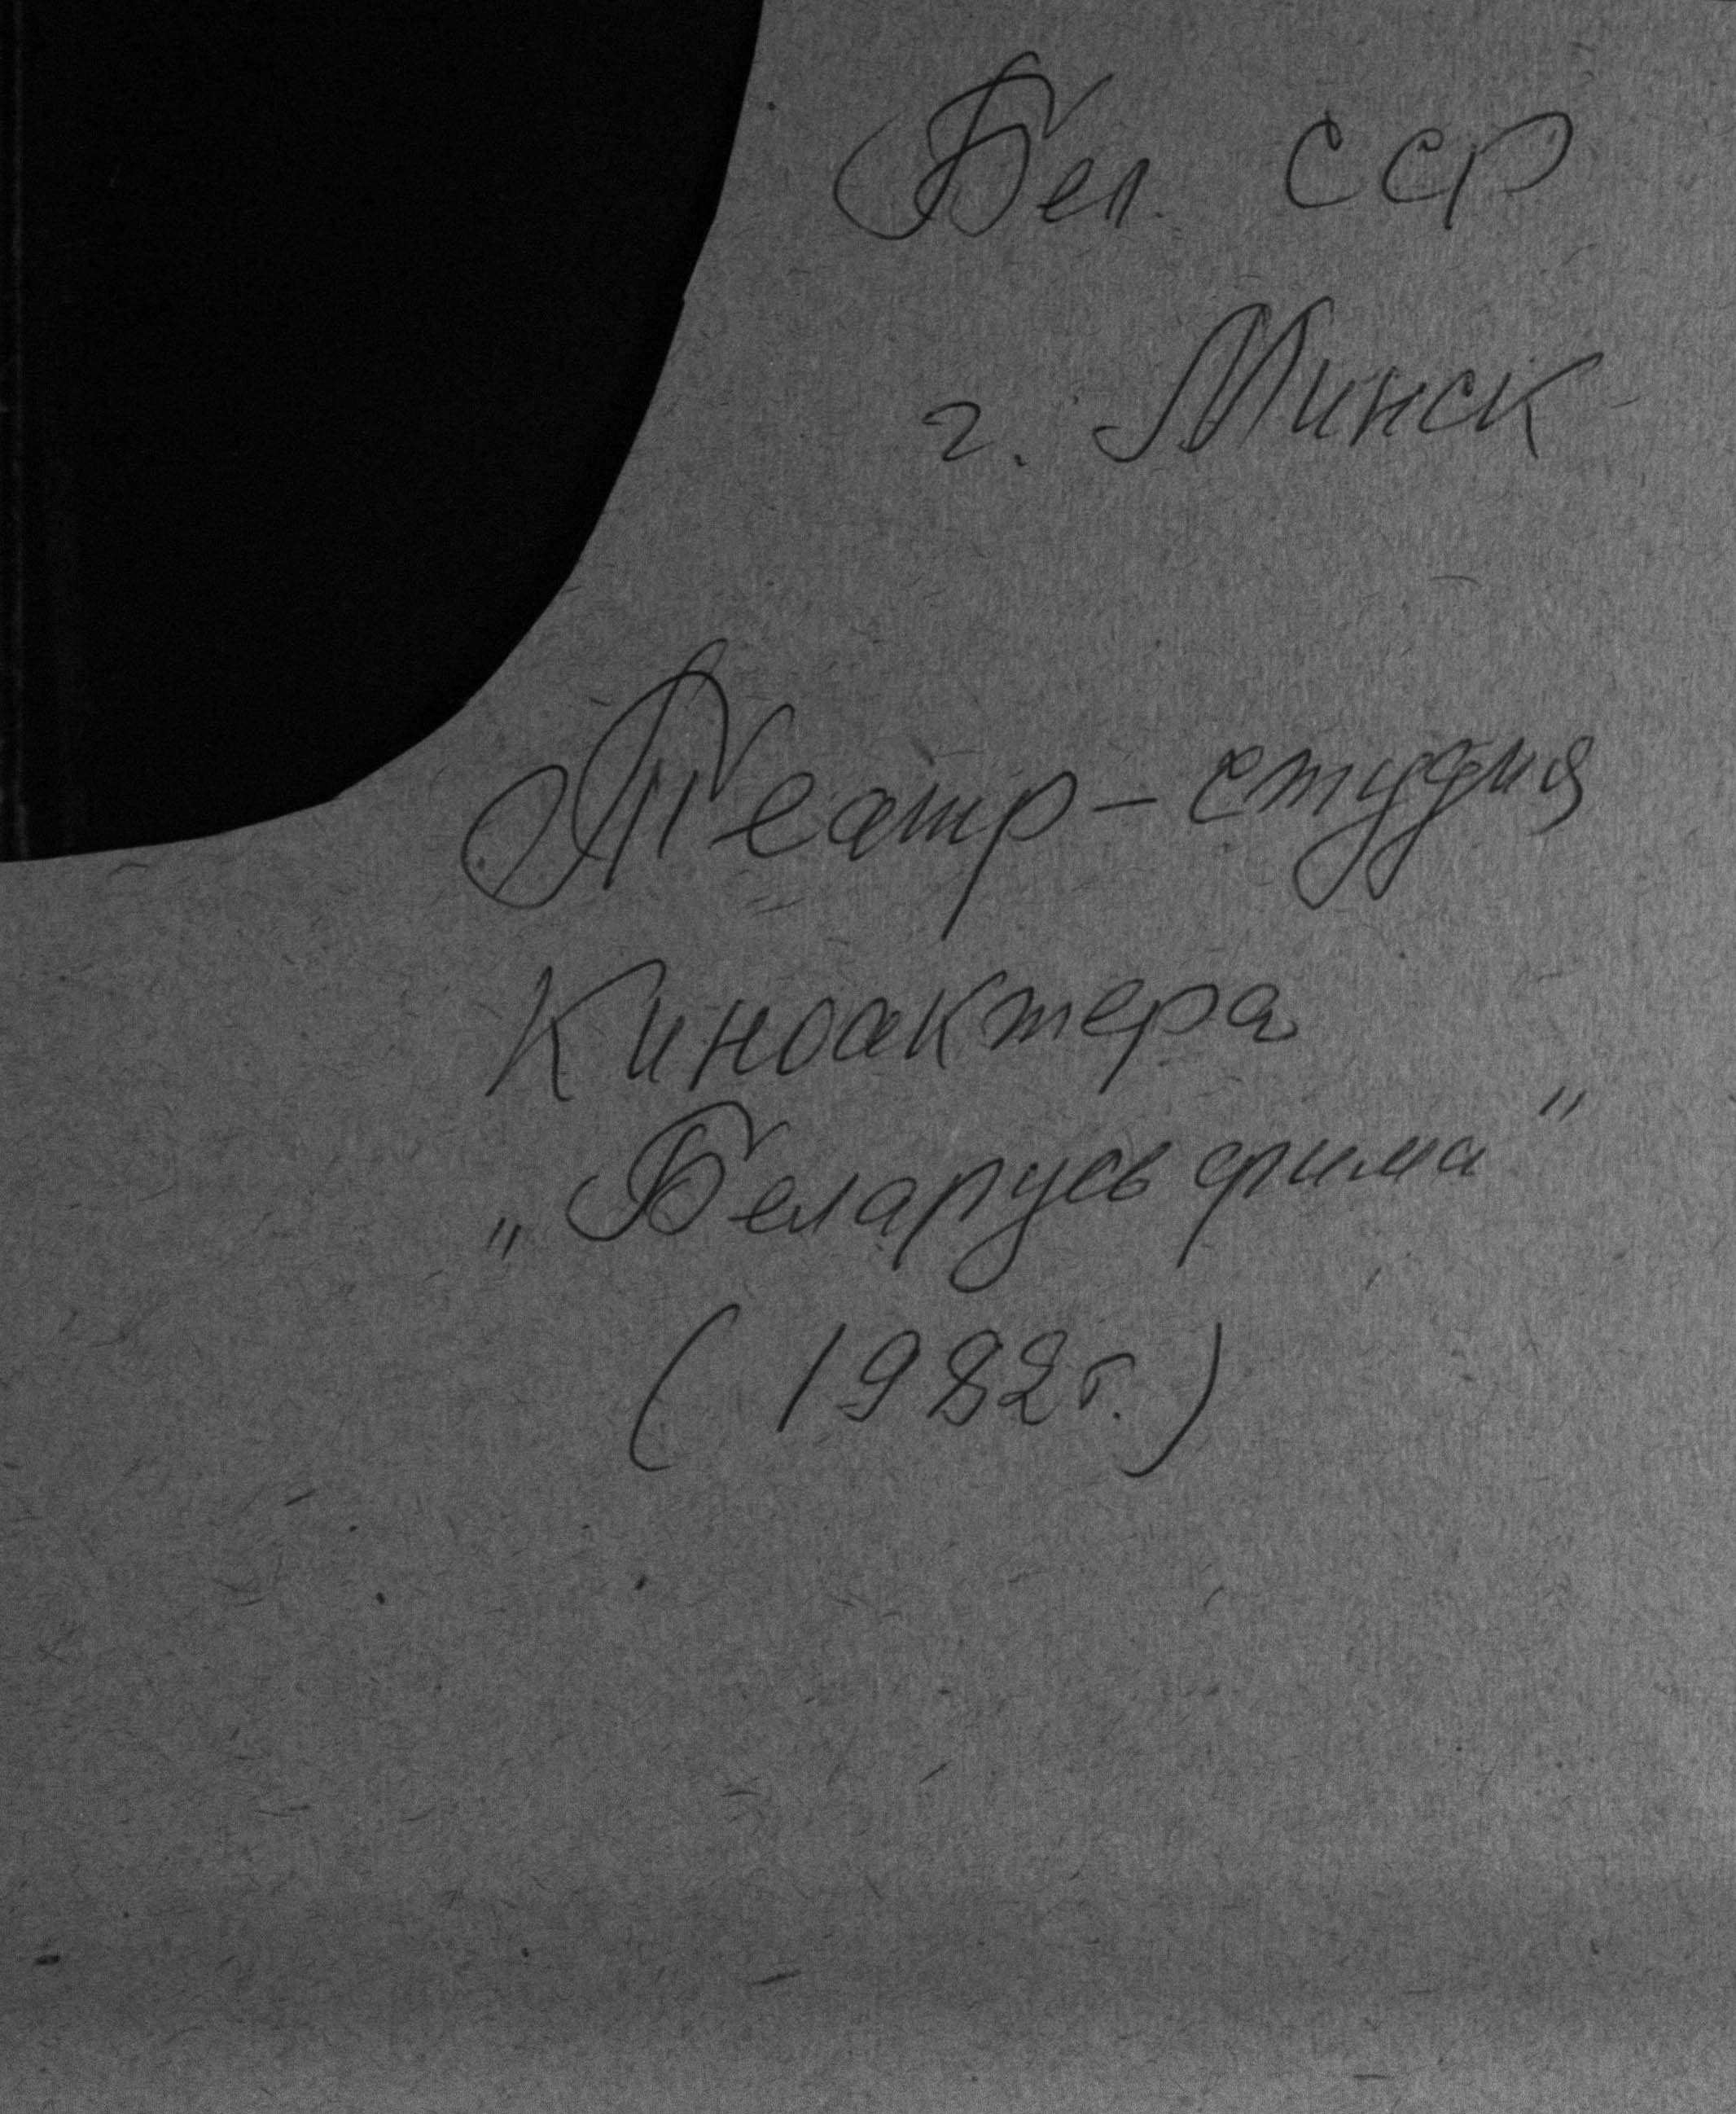 Бел. ССР
г. Минск
Театр-студия
Киноактера
„Беларусьфильма"
(1982г.)